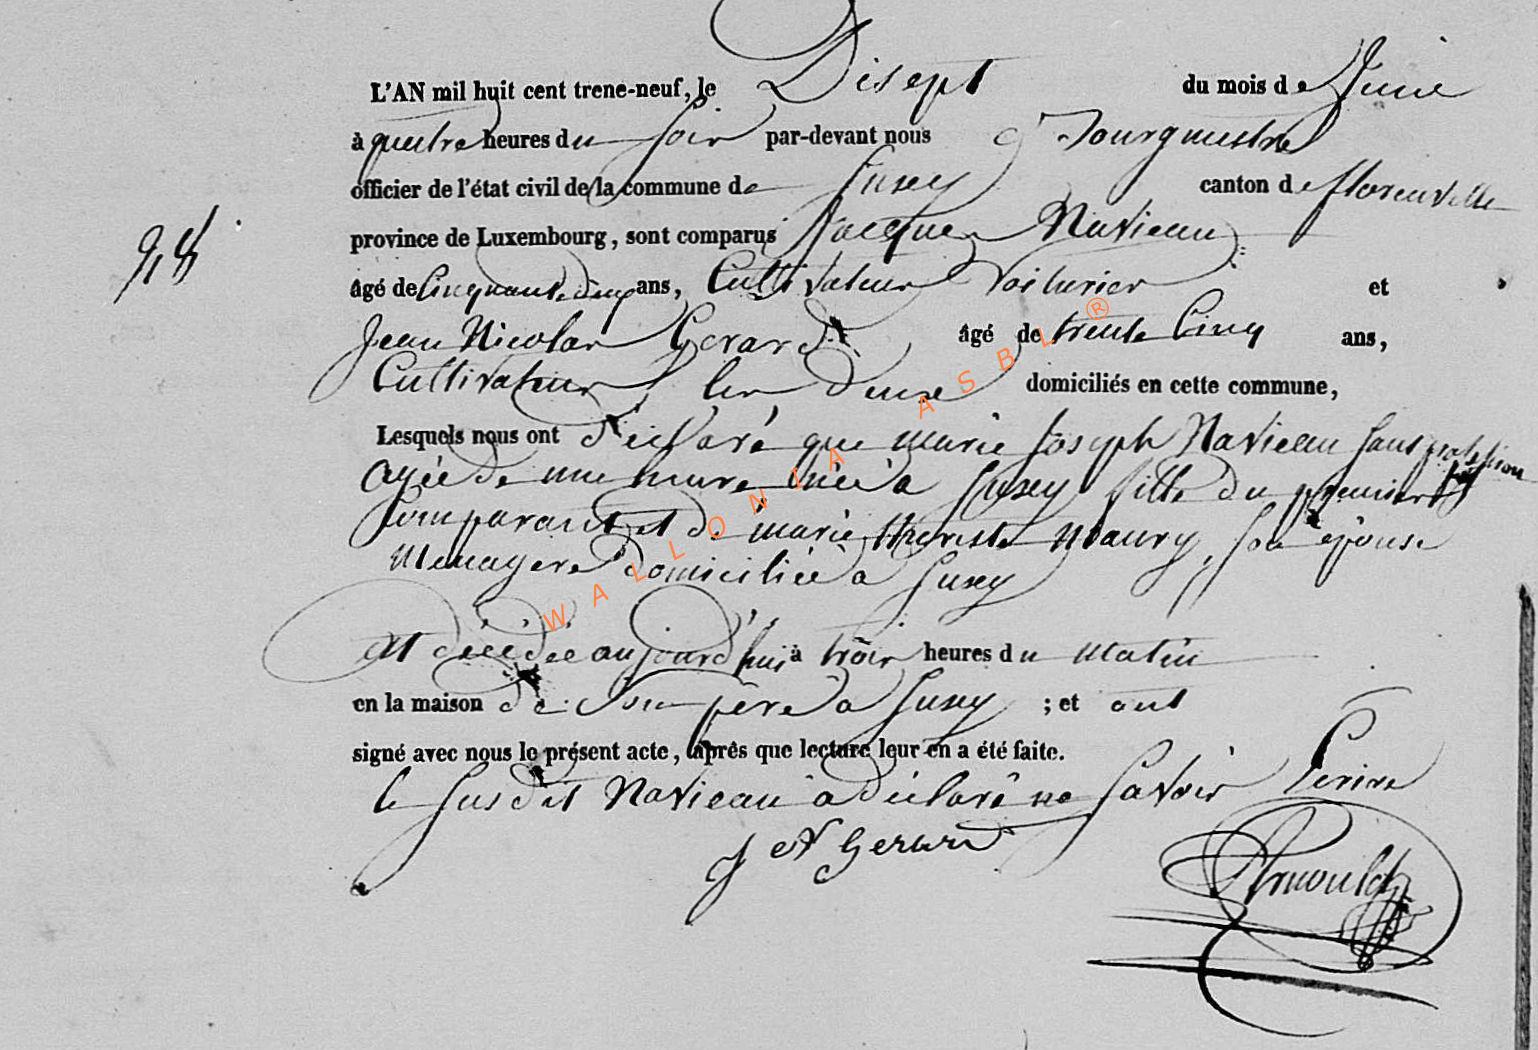 L'AN mil huit cent trene-neuf, le Disept du mois de Juin
à quatre heures du soir par-devant nous Bourgmestre
officier de l'état civil de la commune de Suxey canton de florenville
province de Luxembourg, sont comparus Jacques Navieau
âgé de Cinquante deux ans, Cultivateur Voiturier et
Jean Nicolas Gerard âgé de trente Cinq ans,
Cultivateur les deux domiciliés en cette commune,
Lesquels nous ont déclaré que marie Joseph Navieau sans profession
agée de une heure née à Suxey fille du premier
Comparant et de marie therese Maury, son épouse
Menagere domiciliée à Suxey
est décédée aujourd'hui à trois heures du matin
en la maison de son père à Suxey ; et ont
signé avec nous le présent acte, après que lecture leur en a été faite.
le susdit Navieau a déclaré ne savoir Ecrire
J N Gerard
Arnould
WALLONIA ASBL ®